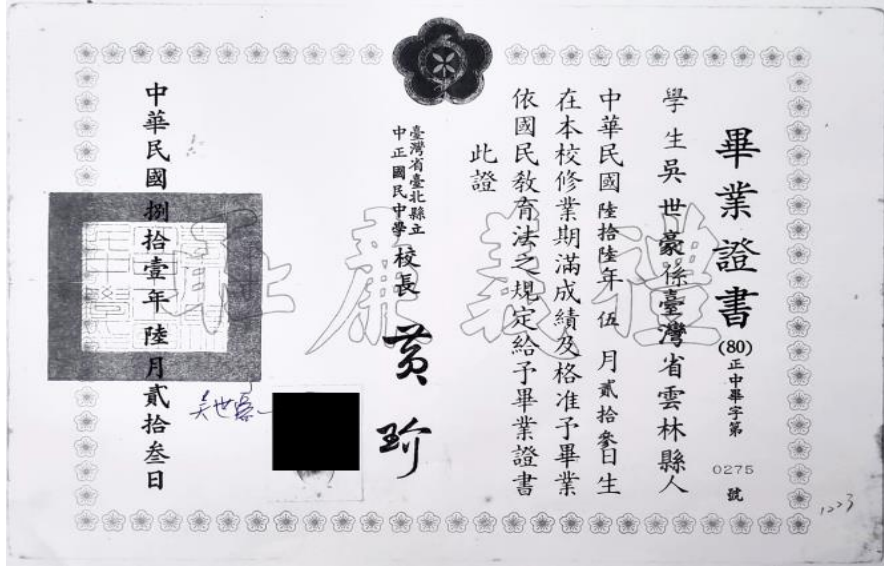 畢業證書
(80)正中畢字第0275號
學生吳世豪係臺灣省雲林縣人
中華民國陸拾陸年伍月貳拾參日生
在本校修業期滿成績及格准予畢業
依國民教育法之規定給予畢業證書
此證
臺灣省臺北縣立
中正國民中學
校長黃玠
中華民國捌拾壹年陸月貳拾叁日
禮義廉恥
吳世豪
1223